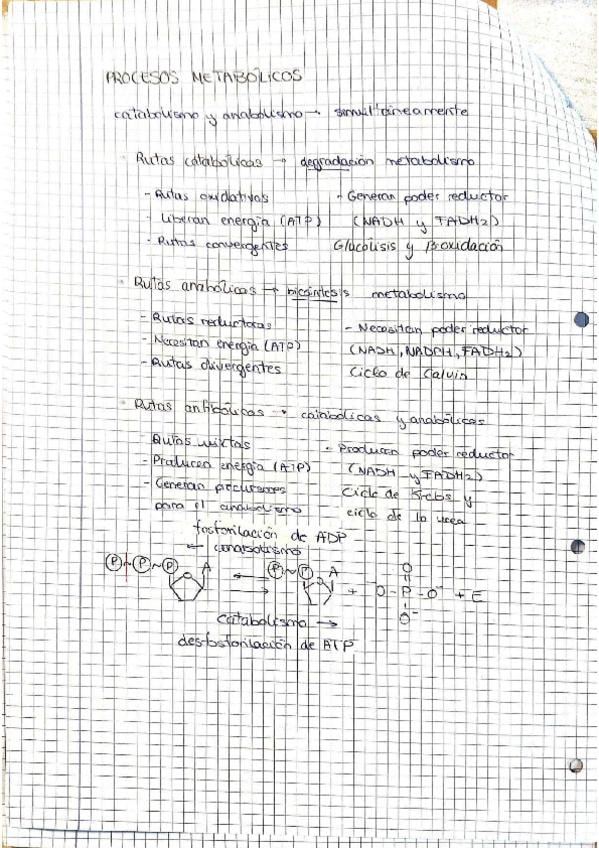 PROCESOS METABÓLICOS
catabolismo y anabolismo → simultáneamente
Rutas catabólicas → degradación metabolismo
- Rutas oxidativas
- Liberan energía (ATP)
- Rutas convergentes
- Generan poder reductor
(NADH y FADH2)
Glucólisis y β oxidación
Rutas anabólicas → biosíntesis metabolismo
- Rutas reductoras
- Necesitan energía (ATP)
- Rutas divergentes
- Necesitan poder reductor
(NADH, NADPH, FADH2)
Ciclo de Calvin
Rutas anfibólicas → catabólicas y anabólicas
- Rutas mixtas
- Producen energía (ATP)
- Generan precursores
para el anabolismo
- Producen poder reductor
(NADH y FADH2)
Ciclo de Krebs y
ciclo de la urea
fosforilación de ADP
← anabolismo
P~P~P A ⇄ P~P A + ⁻O-P-O⁻ + E
O
O⁻
catabolismo →
desfosforilación de ATP